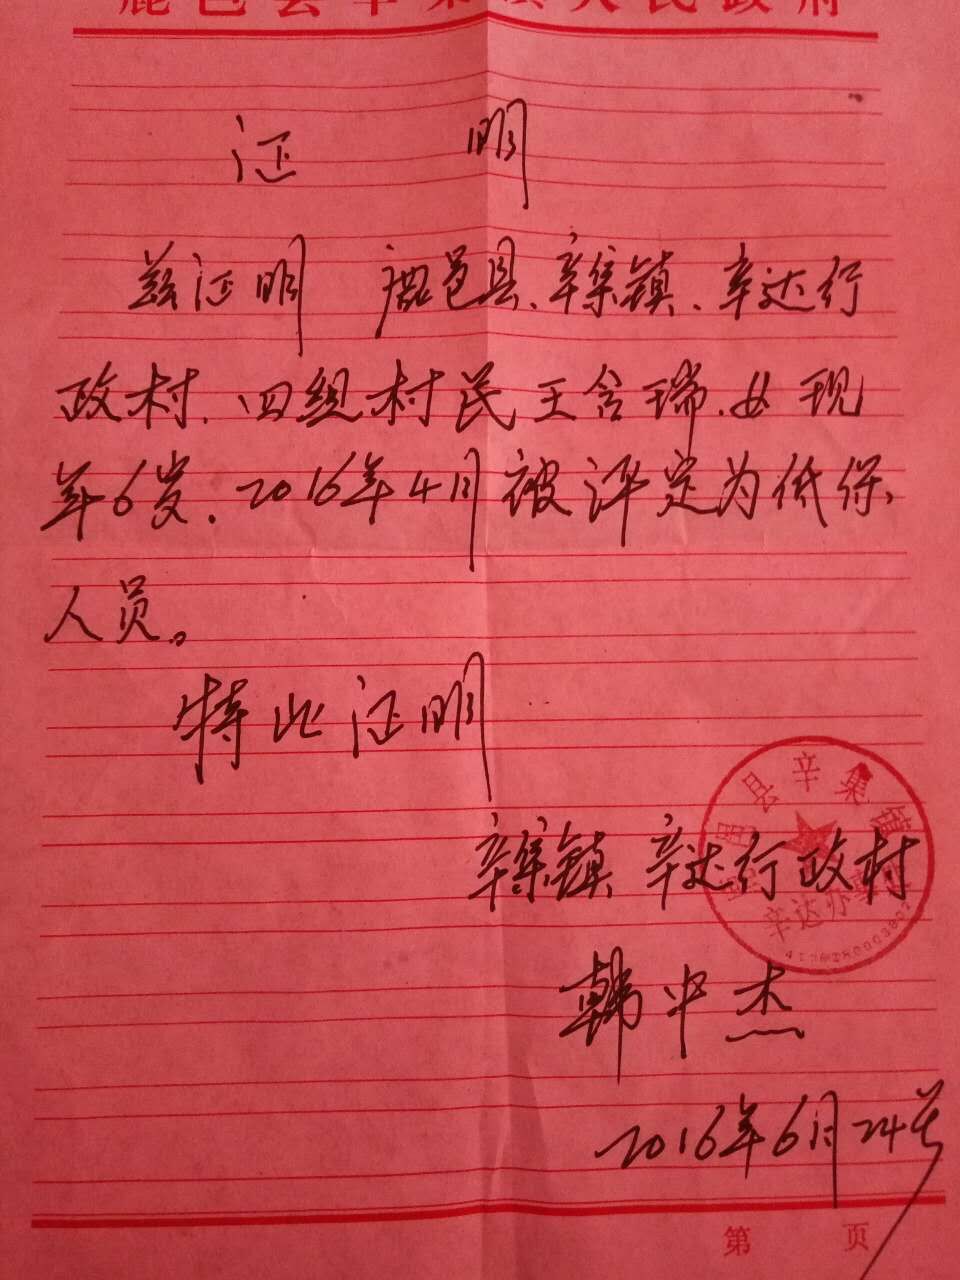 鹿邑县辛集镇人民政府
证 明
兹证明 鹿邑县、辛集镇、辛达行
政村、四组村民王含瑞、女现
年6岁、2016年4月被评定为低保
人员。
特此证明
辛集镇 辛达行政村
韩中杰
2016年6月24号
县辛集镇
辛达办
第 页